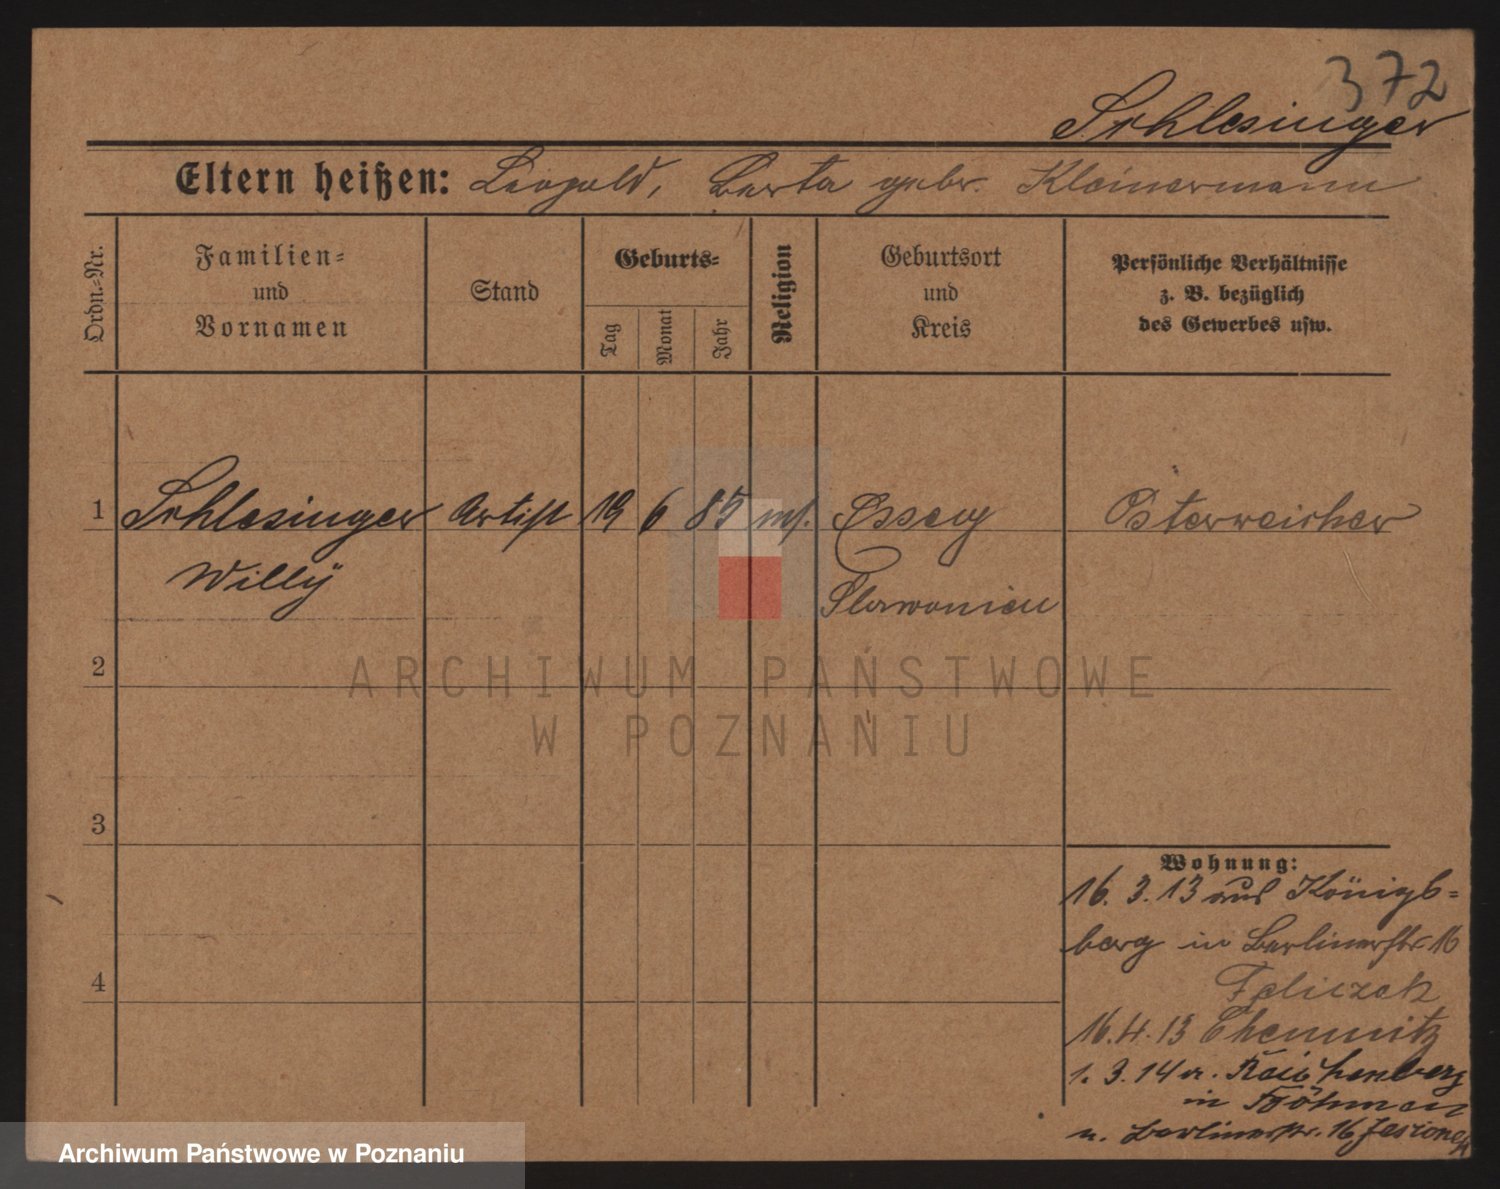 372
Schlesinger
Eltern heißen: Leopold, Berta gebr. Kleinermann
Ordn.-Nr.
Familien-
und
Vornamen
Stand
Geburts-
Tag
Monat
Jahr
Religion
Geburtsort
und
Kreis
Persönliche Verhältnisse
z. B. bezüglich
des Gewerbes usw.
1 Schlesinger Artist 19 6 85 mos. Esseg Österreicher
Willy Slawonien
2
3
4
Wohnung:
16. 3. 13 aus Königs-
berg in Berlinerstr. 16
16. 4. 13 Chemnitz
1. 3. 14 a. Reichenberg
in Böhmen
n. Berlinerstr. 16
ARCHIWUM PAŃSTWOWE
W POZNANIU
Archiwum Państwowe w Poznaniu